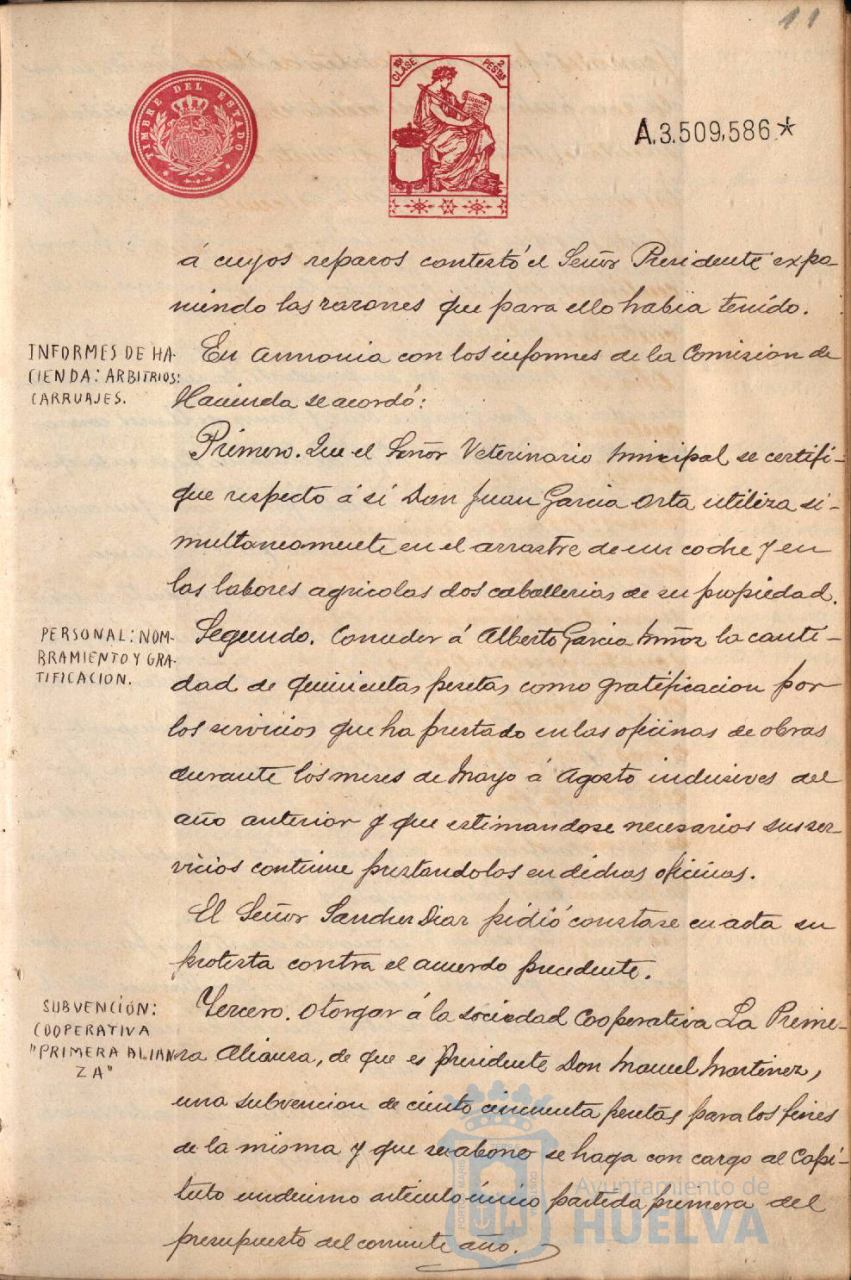 11
TIMBRE DEL ESTADO
10ª CLASE 2 PESTAS
A.3.509,586*
á cuyos reparos contestó el Señor Presidente expo
niendo las razones que para ello habia tenido.
INFORMES DE HA-
CIENDA: ARBITRIOS:
CARRUAJES.
En armonia con los informes de la Comision de
Hacienda se acordó:
Primero. Que el Señor Veterinario Municipal se certifi-
que respecto á si Don Juan Garcia Orta utiliza si-
multaneamente en el arrastre de un coche y en
las labores agricolas dos caballerias de su propiedad.
PERSONAL: NOM-
BRAMIENTO Y GRA-
TIFICACION.
Segundo. Conceder á Alberto Garcia Muñoz la canti-
dad de quinientas pesetas como gratificacion por
los servicios que ha prestado en las oficinas de obras
durante los meses de Mayo á Agosto inclusives del
año anterior y que estimandose necesarios sus ser-
vicios continue prestandolos en dichas oficinas.
El Señor Sanchez Diaz pidió constase en acta su
protesta contra el acuerdo precedente.
SUBVENCIÓN:
COOPERATIVA
"PRIMERA ALIAN-
ZA"
Tercero. Otorgar á la sociedad Cooperativa La Prime-
ra Alianza, de que es Presidente Don Manuel Martinez,
una subvencion de ciento cincuenta pesetas para los fines
de la misma y que su abono se haga con cargo al Capi-
tulo undecimo articulo único partida primera del
presupuesto del corriente año.
Ayuntamiento de
HUELVA